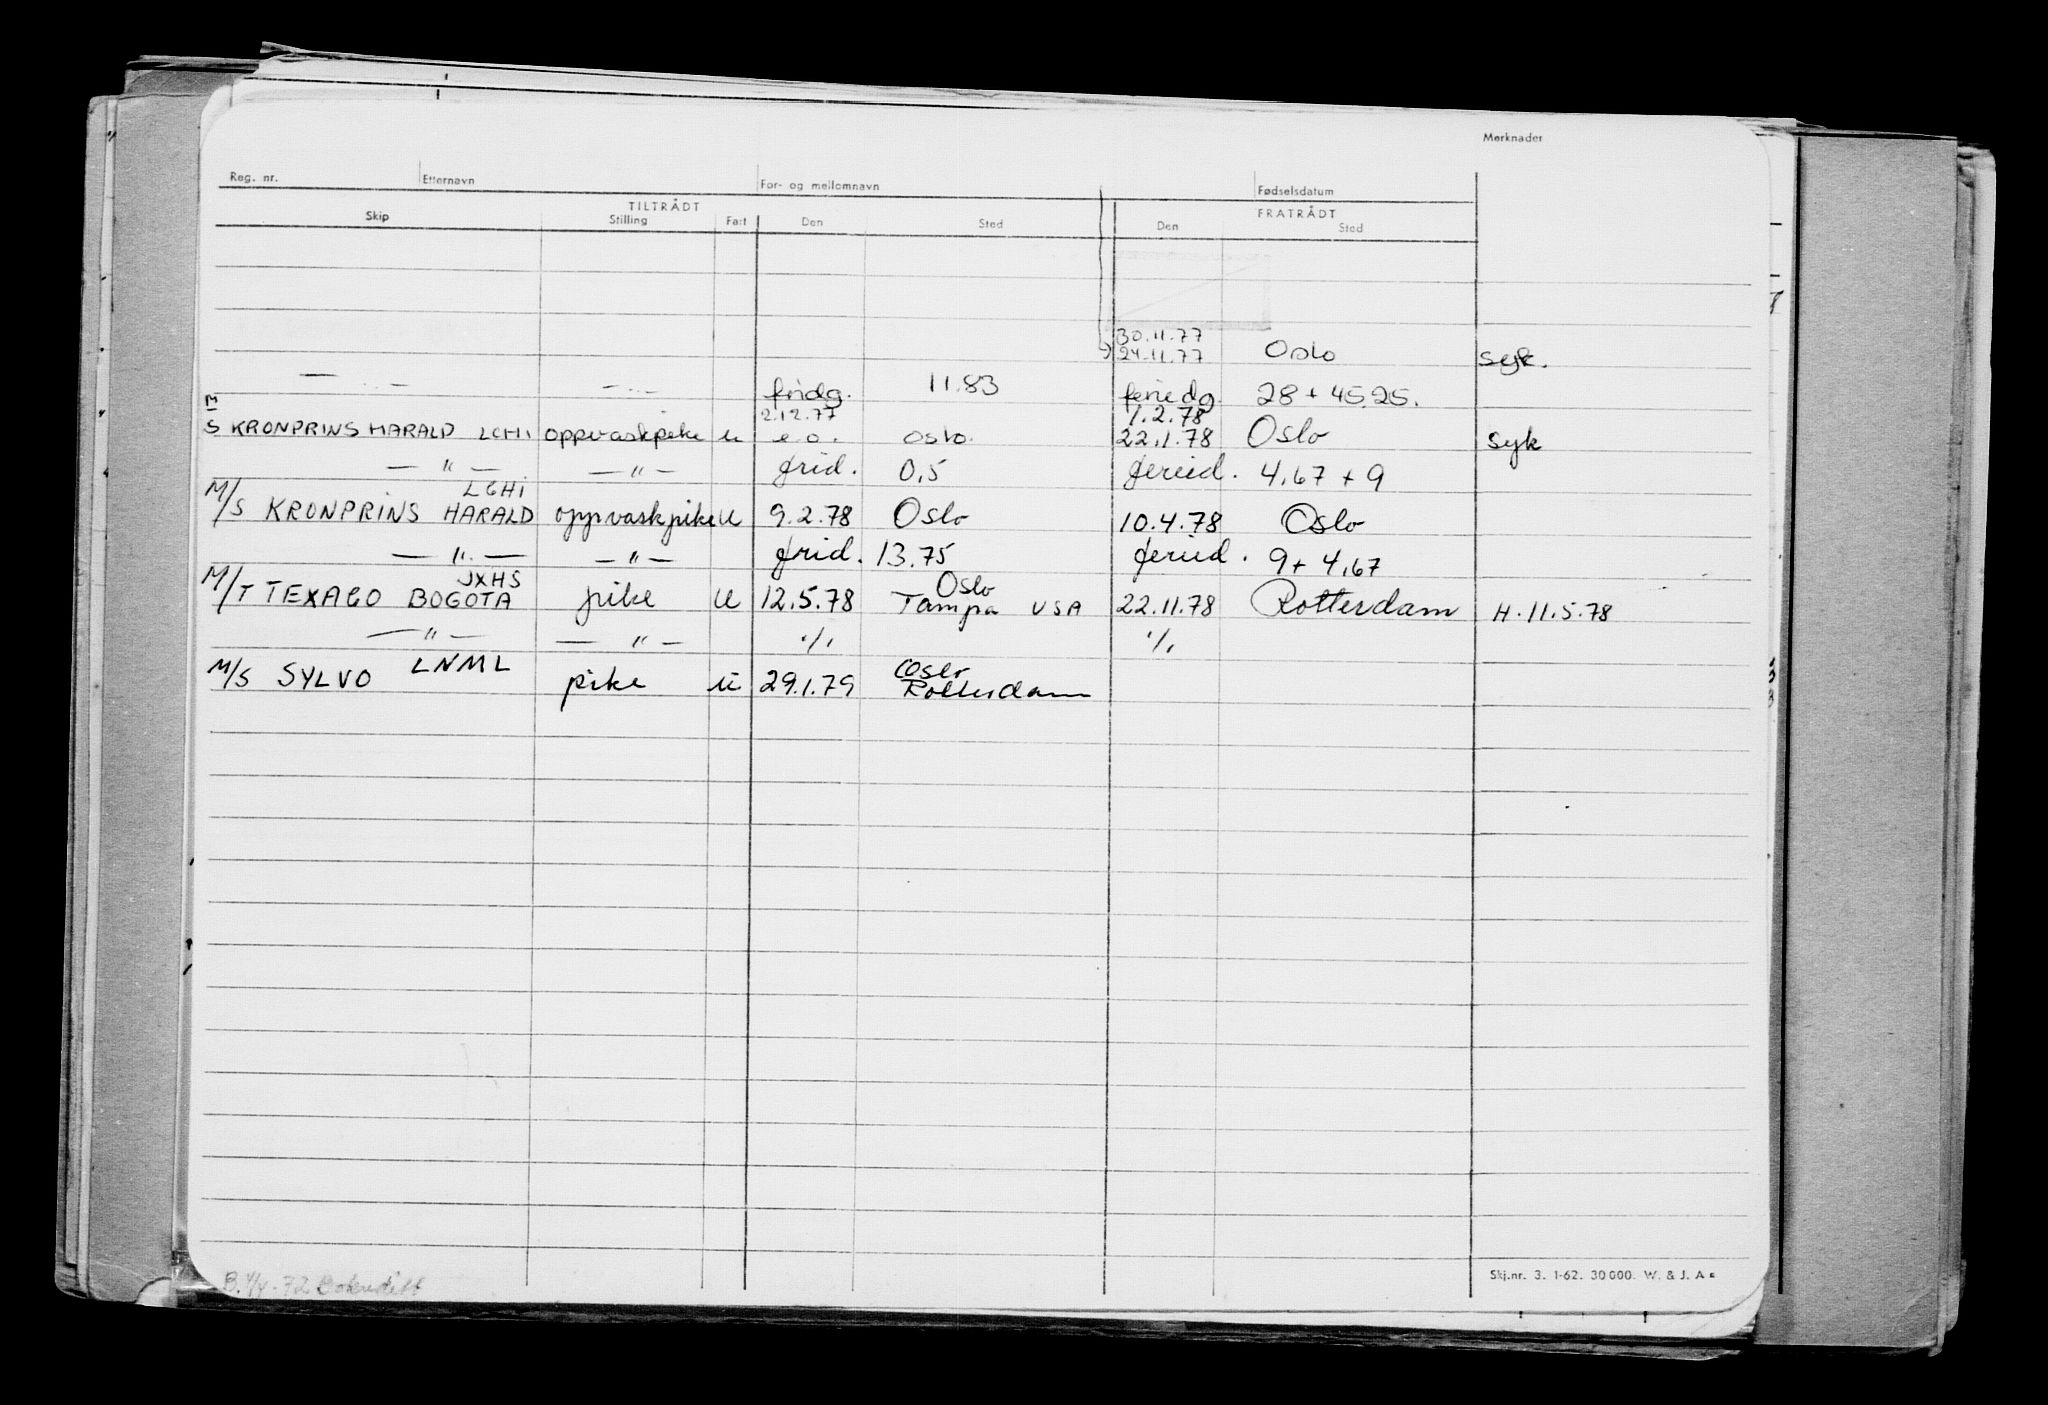 Merknader
Reg. nr. Etternavn For- og mellomnavn Fødselsdatum
TILTRÅDT FRATRÅDT
Skip Stilling Fart Den Sted Den Sted
30.11.77
24.11.77 Oslo syk.
— " — — " — fridg. 11.83 feriedg. 28 + 45.25.
2.12.77 1.2.78
S KRONPRINS HARALD LCHI oppvaskpike u e.o. Oslo. 22.1.78 Oslo syk
— " — — " — frid. 0,5 feried. 4,67 + 9
LGHI
M/S KRONPRINS HARALD oppvaskpike U 9.2.78 Oslo 10.4.78 Oslo
— " — — " — frid. 13.75 feried. 9 + 4,67
JXHS Oslo
M/T TEXACO BOGOTA pike U 12.5.78 Tampa USA 22.11.78 Rotterdam H. 11.5.78
— " — — " — ./. ./.
LNML Oslo
M/S SYLVO pike u 29.1.79 Rotterdam
Skj.nr. 3. 1-62. 30 000. W. & J. A s